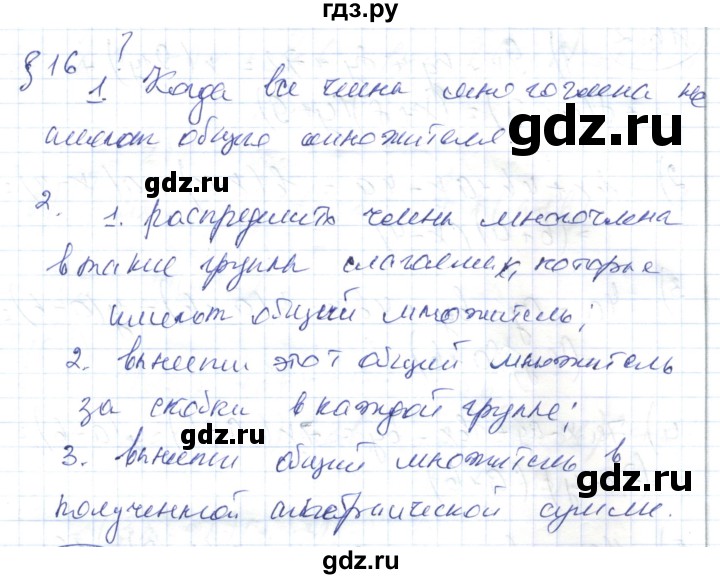 гдз.ру
§ 16 ?
1 Когда все члены многочлена не
имеют общего множителя
gdz.ru
gdz.ru
2. 1. распределить члены многочлена
в такие группы слагаемых, которые
имеют общий множитель;
2. вынести этот общий множитель
за скобки в каждой группе;
gdz.ru
3. вынести общий множитель в
gdz.ru
полученной алгебраической сумме.
gdz.ru